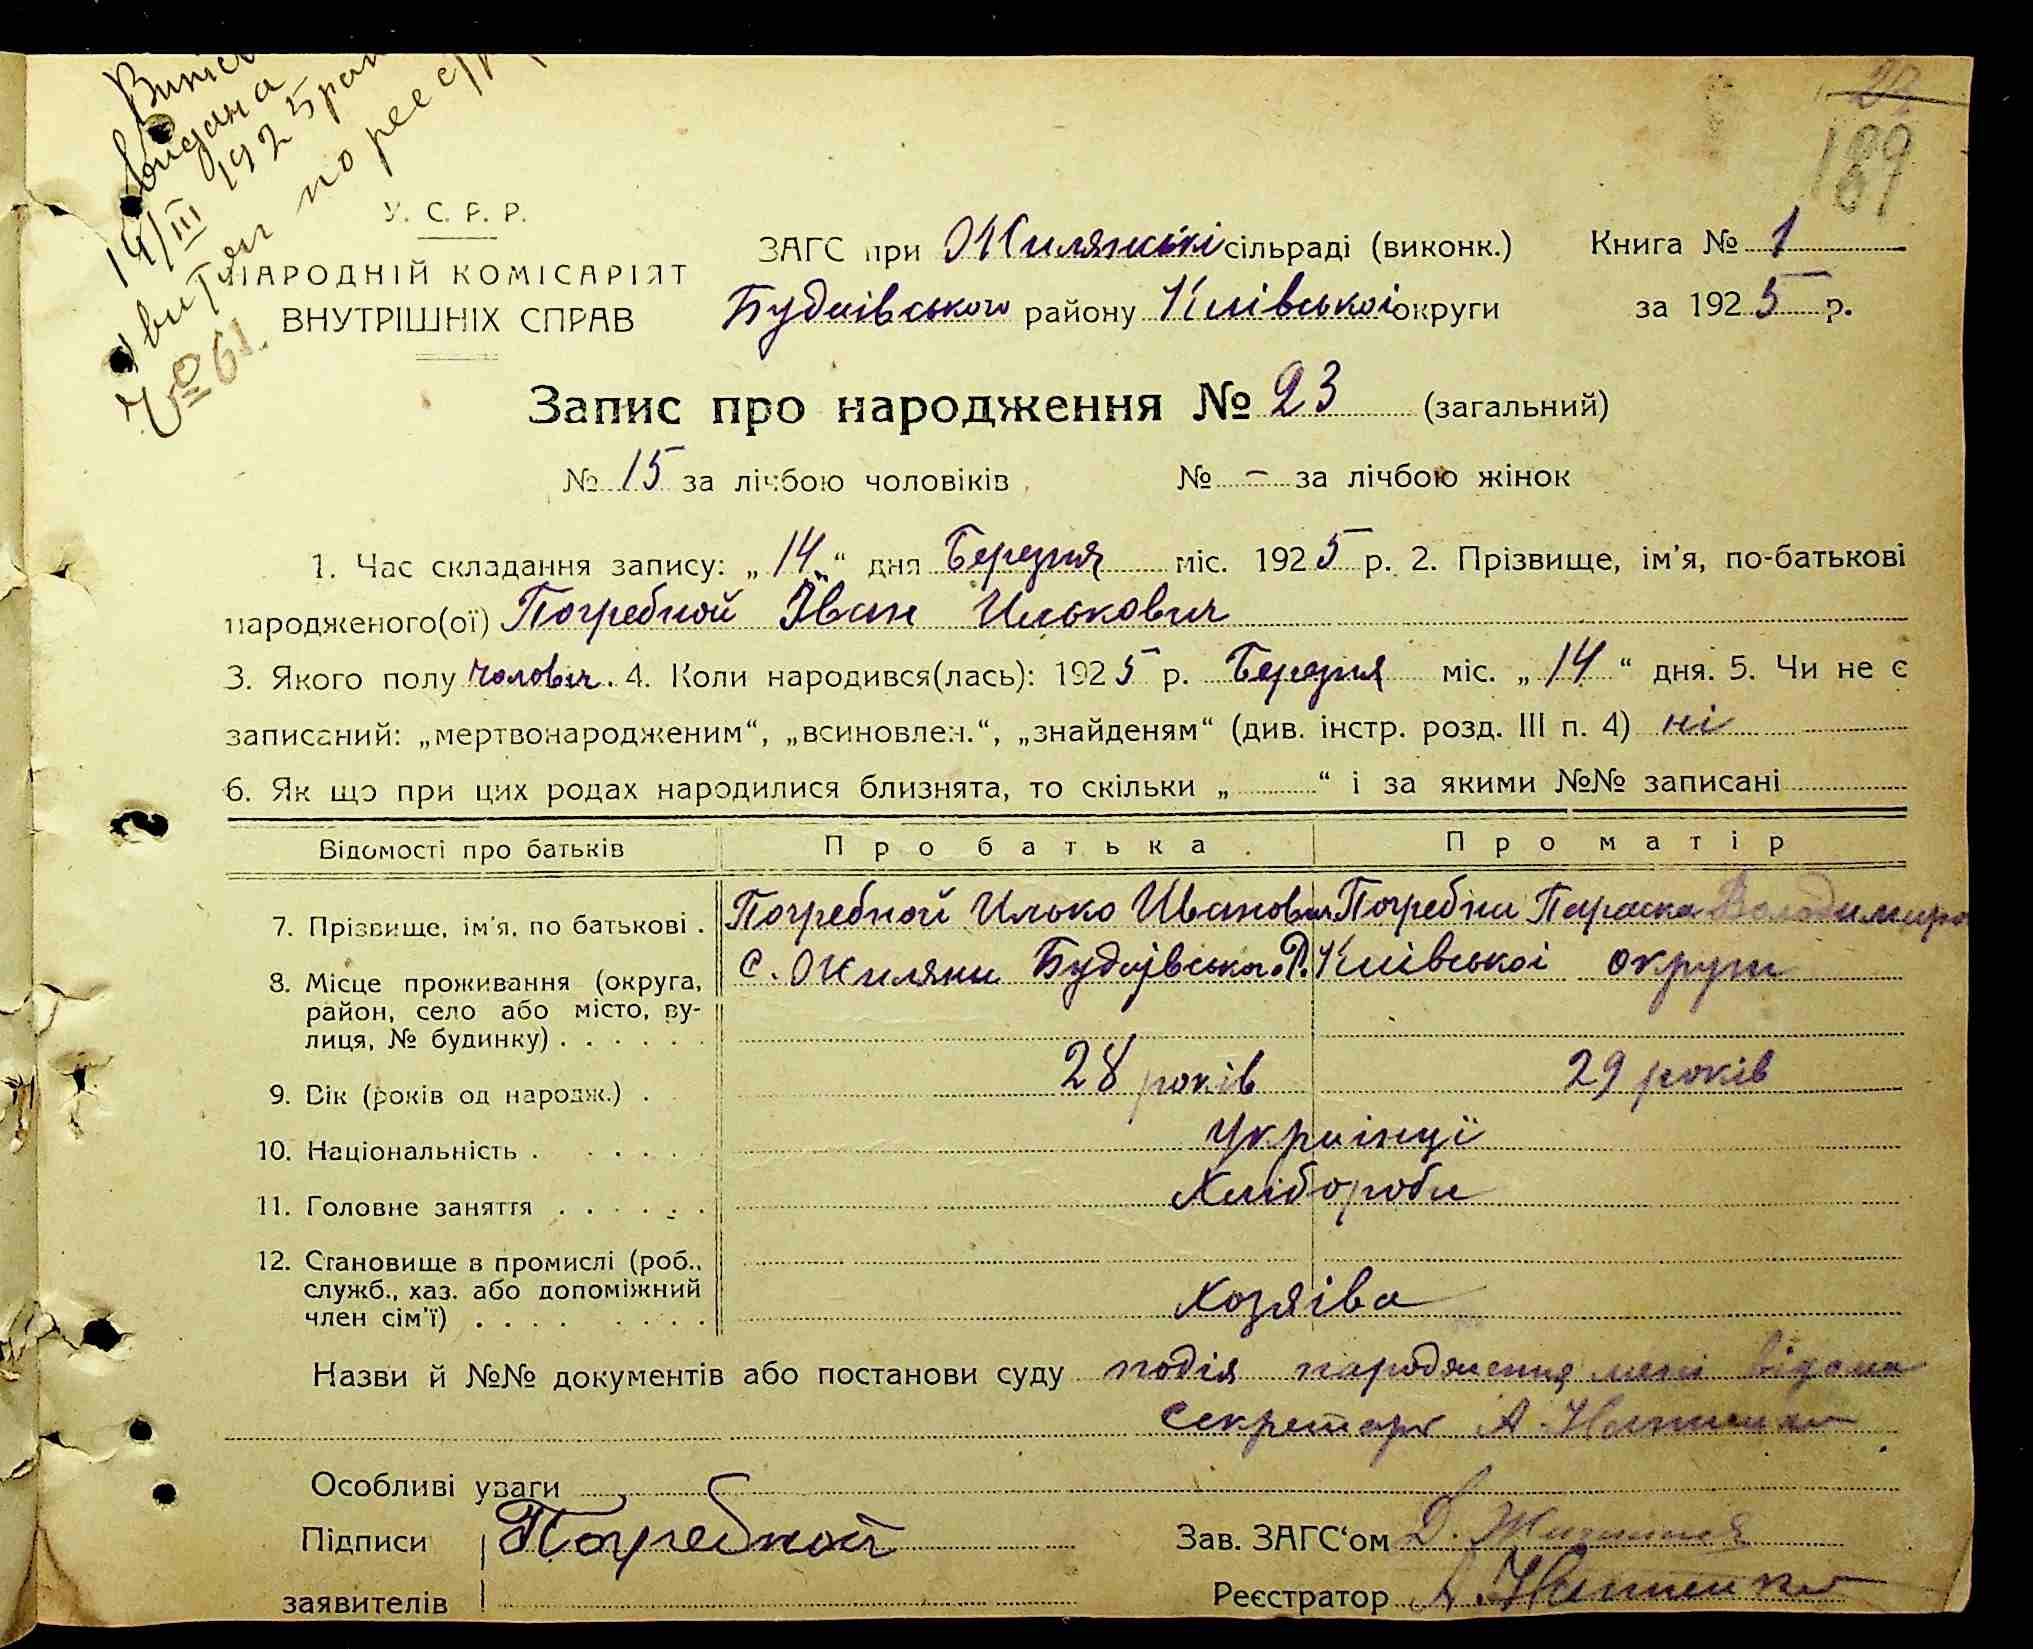 Випіс
видана
14/III 1925 рок
по реєстр
№ 61.
22
189
У. С. Р. Р.
НАРОДНІЙ КОМІСАРІЯТ
ВНУТРІШНІХ СПРАВ
ЗАГС при Жилянські сільраді (виконк.) Книга № 1
Будаівського району Київськоі округи за 1925 р.
Запис про народження № 23 (загальний)
№ 15 за лічбою чоловіків № – за лічбою жінок
1. Час складання запису: „14“ дня Березня міс. 1925 р. 2. Прізвище, ім'я, по-батькові
народженого(ої) Погребной Іван Илькович
3. Якого полу чоловіч. 4. Коли народився(лась): 1925 р. Березня міс. „14“ дня. 5. Чи не є
записаний: „мертвонародженим“, „всиновлен.“, „знайденям“ (див. інстр. розд. III п. 4) ні
6. Як що при цих родах народилися близнята, то скільки „ “ і за якими №№ записані
Відомості про батьків Про батька. Про матір
7. Прізвище, ім'я, по батькові . Погребной Илько Иванович Погребна Параска Володимиро
8. Місце проживання (округа, район, село або місто, ву- лиця, № будинку) . . . . . . с. Жиляни Будаівськ. Р. Київськоі округи
9. Вік (років од народж.) . 28 років 29 років
10. Національність . . . . . . українці
11. Головне заняття . . . . . . Хлібороби
12. Становище в промислі (роб., служб., хаз. або допоміжний член сім'ї) . . . . . . . . хозяіва
Назви й №№ документів або постанови суду подія народження мені відома
секретарь А.
Особливі уваги
Підписи Погребной Зав. ЗАГС‘ом Д.
заявителів Реєстратор А.